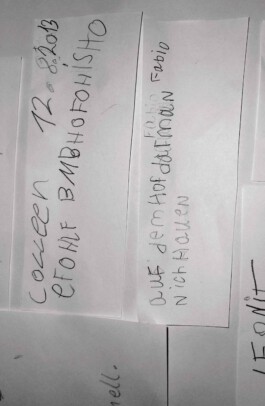 colleen 12.8.2013
EFOHLF BMBHOFOHİSHO
AUF demHOFdARFMAN FABIO
NichtHAUEN
nell.
LEONIT